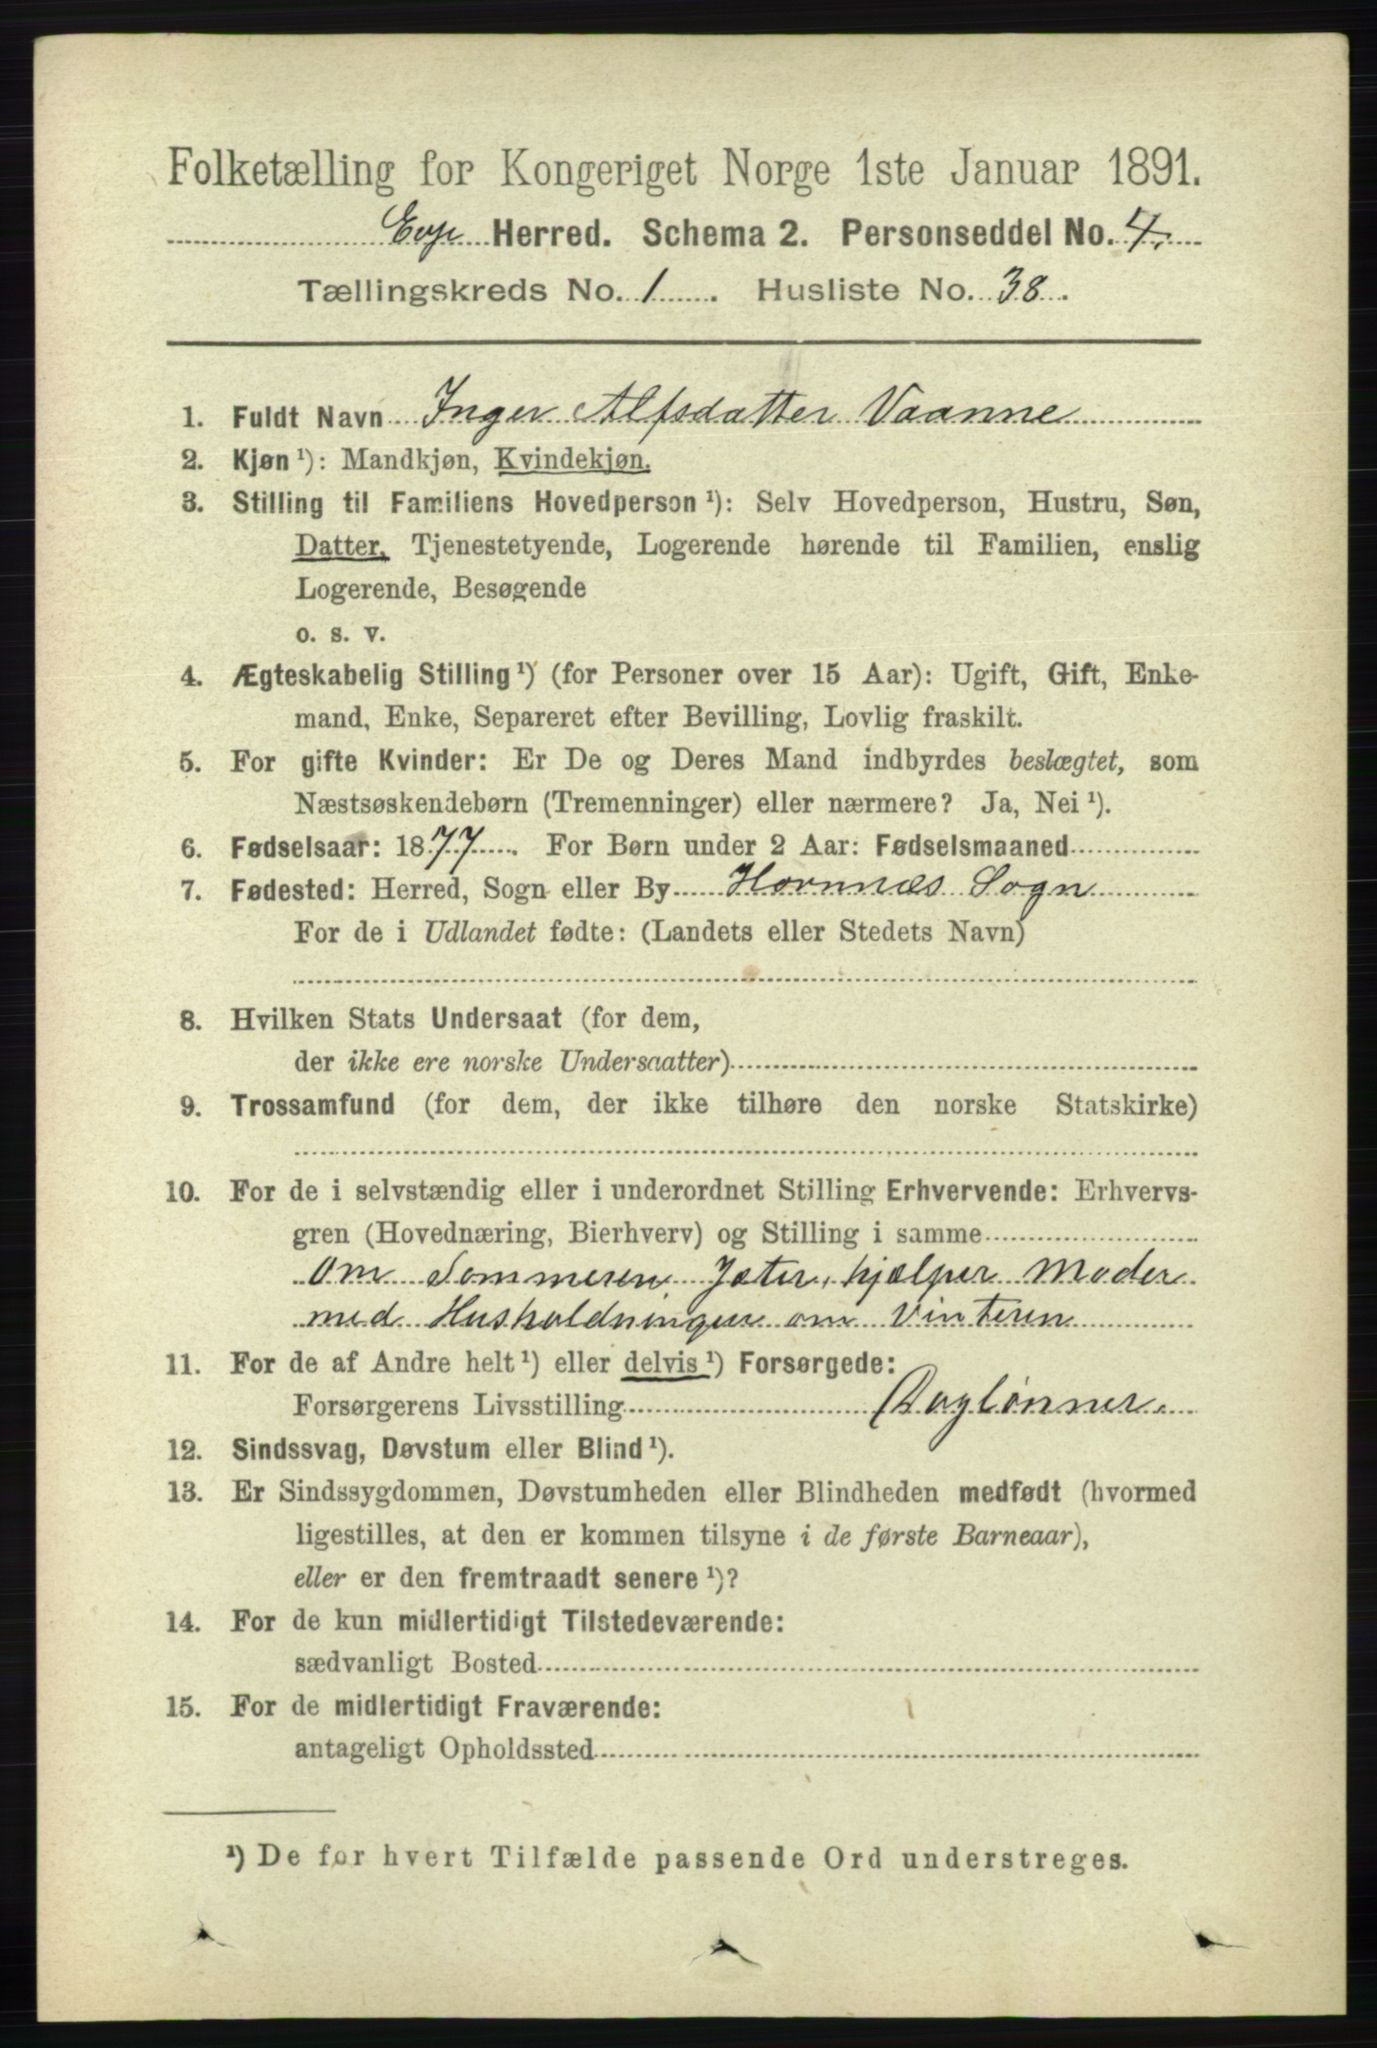 Folketælling for Kongeriget Norge 1ste Januar 1891.
Evje Herred. Schema 2. Personseddel No. 4.
Tællingskreds No. 1. Husliste No. 38.
1. Fuldt Navn Inger Alfsdatter Vaanne
2. Kjøn ¹): Mandkjøn, Kvindekjøn.
3. Stilling til Familiens Hovedperson ¹): Selv Hovedperson, Hustru, Søn,
Datter, Tjenestetyende, Logerende hørende til Familien, enslig
Logerende, Besøgende
o. s. v.
4. Ægteskabelig Stilling ¹) (for Personer over 15 Aar): Ugift, Gift, Enke-
mand, Enke, Separeret efter Bevilling, Lovlig fraskilt.
5. For gifte Kvinder: Er De og Deres Mand indbyrdes beslægtet, som
Næstsøskendebørn (Tremenninger) eller nærmere? Ja, Nei ¹).
6. Fødselsaar: 1877. For Børn under 2 Aar: Fødselsmaaned
7. Fødested: Herred, Sogn eller By Hornnæs Sogn
For de i Udlandet fødte: (Landets eller Stedets Navn)
8. Hvilken Stats Undersaat (for dem,
der ikke ere norske Undersaatter)
9. Trossamfund (for dem, der ikke tilhøre den norske Statskirke)
10. For de i selvstændig eller i underordnet Stilling Erhvervende: Erhvervs-
gren (Hovednæring, Bierhverv) og Stilling i samme
Om Sommeren Jæter, hjælper Moder
med Husholdningen om Vinteren
11. For de af Andre helt ¹) eller delvis ¹) Forsørgede:
Forsørgerens Livsstilling Daglønner.
12. Sindssvag, Døvstum eller Blind ¹).
13. Er Sindssygdommen, Døvstumheden eller Blindheden medfødt (hvormed
ligestilles, at den er kommen tilsyne i de første Barneaar),
eller er den fremtraadt senere ¹)?
14. For de kun midlertidigt Tilstedeværende:
sædvanligt Bosted
15. For de midlertidigt Fraværende:
antageligt Opholdssted
¹) De for hvert Tilfælde passende Ord understreges.